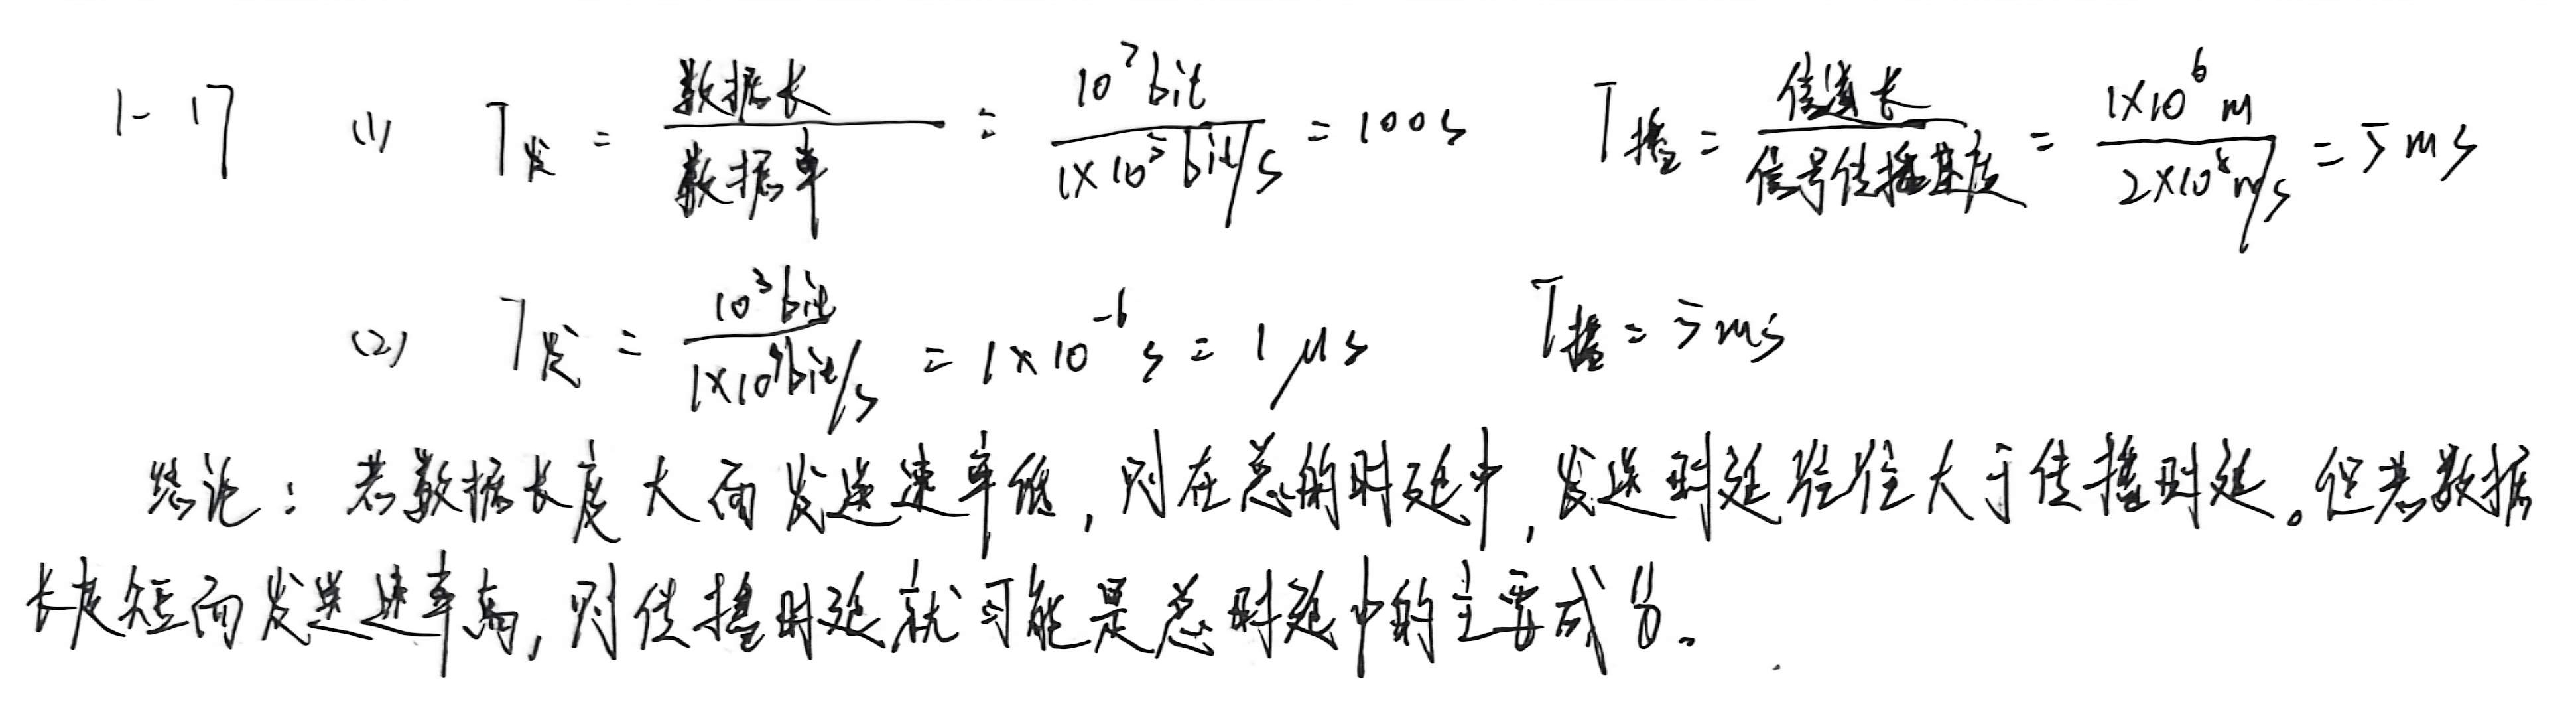 1-17 (1) T发 = 数据长/数据率 = 10^7 bit/(1×10^5 bit/s) = 100s T播 = 信道长/信号传播速度 = 1×10^6 m/(2×10^8 m/s) = 5ms
(2) T发 = 10^3 bit/(1×10^9 bit/s) = 1×10^-6 s = 1μs T播 = 5ms
结论：若数据长度大而发送速率低，则在总的时延中，发送时延往往大于传播时延。但若数据
长度短而发送速率高，则传播时延就可能是总时延中的主要成分。